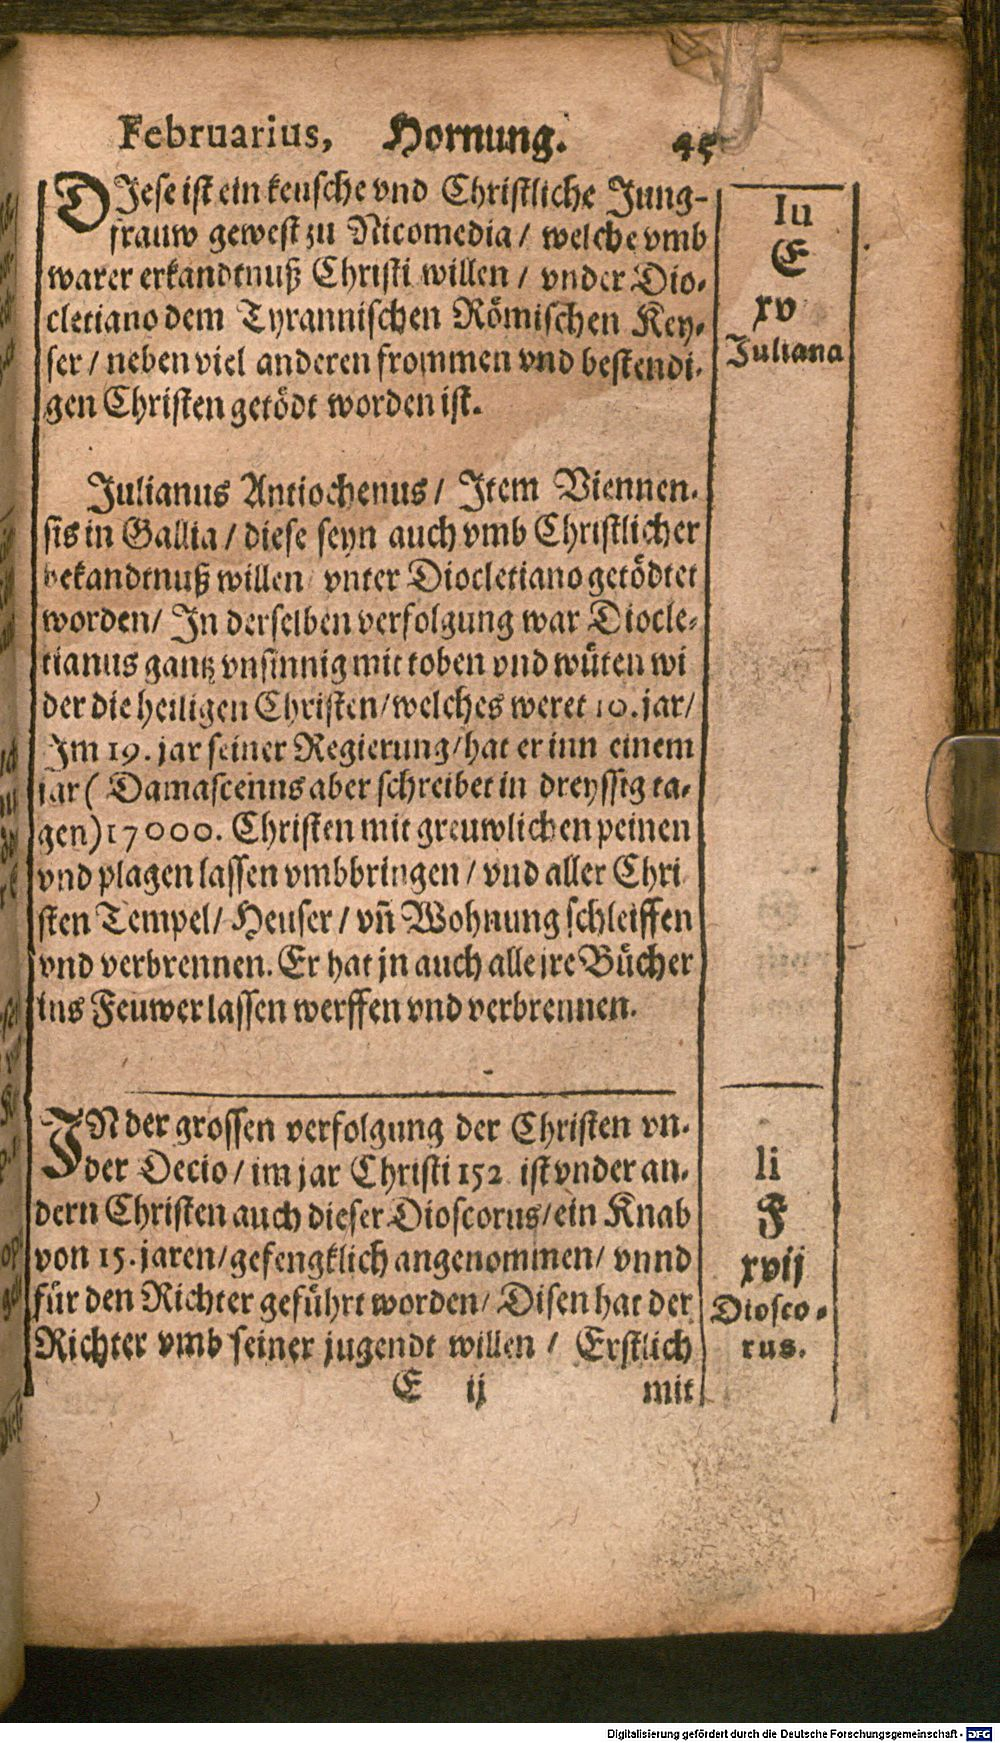 Februarius, Hornung. 45
DJese ist ein keusche vnd Christliche Jung-
frauw gewest zu Nicomedia / welche vmb
warer erkandtnuß Christi willen / vnder Dio-
cletiano dem Tyrannischen Römischen Key-
ser / neben viel anderen frommen vnd bestendi-
gen Christen getödt worden ist.
Iu
E
xv
Juliana
Julianus Antiochenus / Item Viennen-
sis in Gallia / diese seyn auch vmb Christlicher
bekandtnuß willen vnter Diocletiano getödtet
worden / In derselben verfolgung war Diocle-
tianus gantz vnsinnig mit toben vnd wüten wi
der die heiligen Christen / welches weret 10. jar /
Im 19. jar seiner Regierung / hat er inn einem
jar ( Damascenus aber schreibet in dreyssig ta-
gen) 17000. Christen mit greuwlichen peinen
vnd plagen lassen vmbbringen / vnd aller Chri
sten Tempel / Heuser / vñ Wohnung schleiffen
vnd verbrennen. Er hat jn auch alle jre Bücher
ins Feuwer lassen werffen vnd verbrennen.
IN der grossen verfolgung der Christen vn-
der Decio / im jar Christi 152 ist vnder an-
dern Christen auch dieser Dioscorus / ein Knab
von 15. jaren / gefengklich angenommen / vnnd
für den Richter geführt worden / Disen hat der
Richter vmb seiner jugendt willen / Erstlich
E ij mit
li
F
xvij
Diosco-
rus.
Digitalisierung gefördert durch die Deutsche Forschungsgemeinschaft - DFG